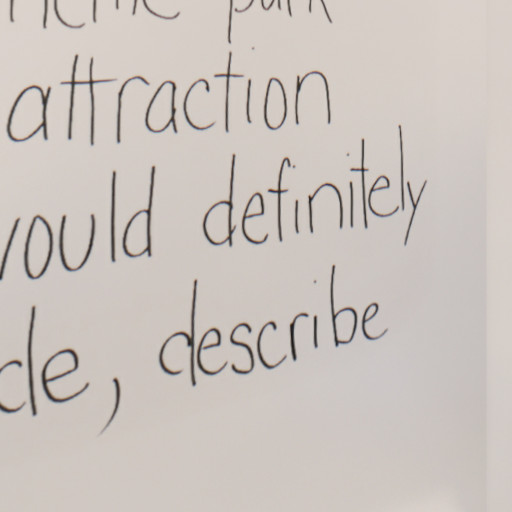 theme park
attraction
would definitely
de, describe